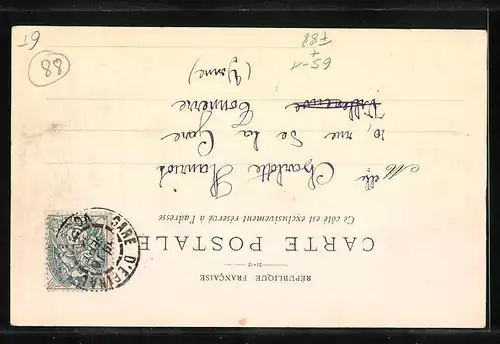 RÉPUBLIQUE FRANÇAISE
CARTE POSTALE
Ce côté est exclusivement réservé à l'adresse
Melle Charlotte Hanriot
10, rue de la Gare
Tonnerre
(Yonne)
GARE D'EPINAL
88
6T
65-1
+
F88